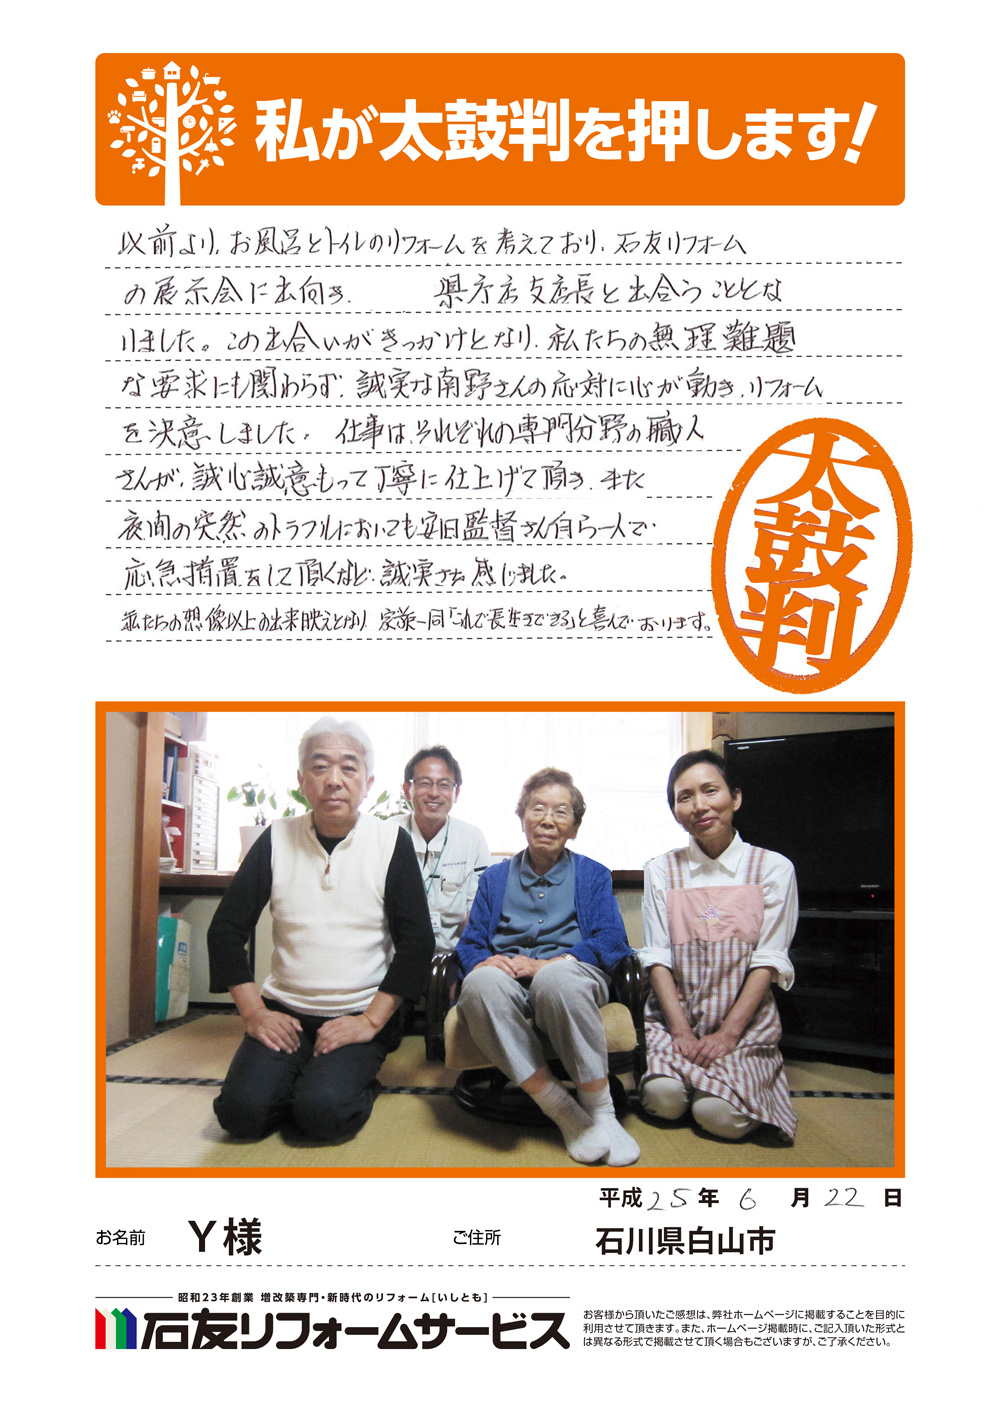 私が太鼓判を押します!
以前より、お風呂とトイレのリフォームを考えており、石友リフォーム
の展示会に出向き、 県庁店支店長と出合うこととな
りました。この出合いがきっかけとなり、私たちの無理難題
な要求にも関わらず、誠実な南野さんの応対に心が動き、リフォーム
を決意しました。 仕事は、それぞれの専門分野の職人
さんが、誠心誠意もって丁寧に仕上げて頂き、また
夜間の突然のトラブルにおいても安田監督さん自ら一人で
応急措置をして頂くなど、誠実さを感じました。
私たちの想像以上の出来映えとなり、家族一同「これで長生きできる」と喜んでおります。
太鼓判
平成25年 6 月 22 日
お名前 Y様 ご住所 石川県白山市
昭和23年創業 増改築専門・新時代のリフォーム[いしとも]
石友リフォームサービス
お客様から頂いたご感想は、弊社ホームページに掲載することを目的に
利用させて頂きます。また、ホームページ掲載時に、ご記入頂いた形式と
は異なる形式で掲載させて頂く場合もございますが、ご了承ください。